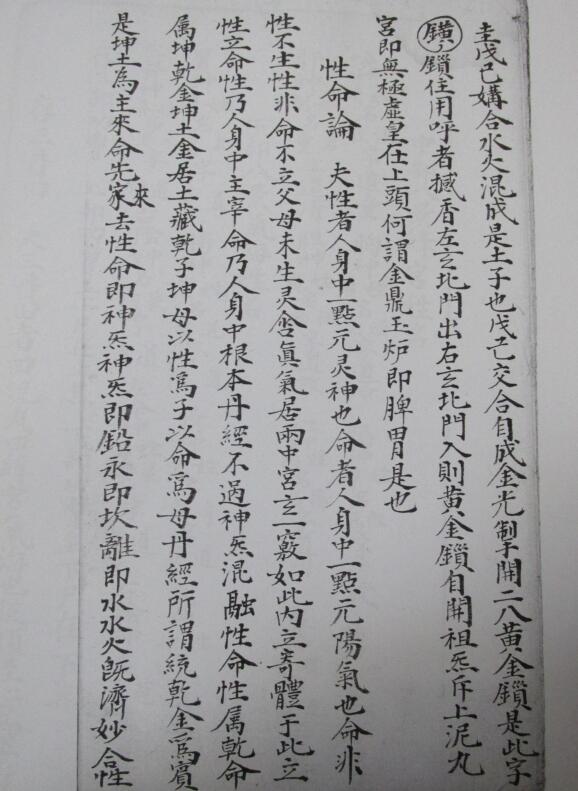 圭戊己媾合水火混成是土子也戊己交合自成金光掣開二八黃金鎖是此字
鐄鎖住用呼者撼香左玄北門出右玄北門入則黃金鎖自開祖炁斥上泥丸
宮即無極虛皇在上頭何謂金鼎玉炉即脾胃是也
性命論 夫性者人身中一點元灵神也命者人身中一點元陽氣也命非
性不生性非命不立父母未生灵含眞氣居兩中宮玄一竅如此內立寄體于此立
性立命性乃人身中主宰命乃人身中根本丹經不過神炁混融性命性属乾命
属坤乾金坤土金居土藏乾子坤母以性爲子以命爲母丹經所謂統乾金爲賓
是坤土為主來命先家來去性命即神炁神炁即鉛永即坎離即水水火旣濟妙合性